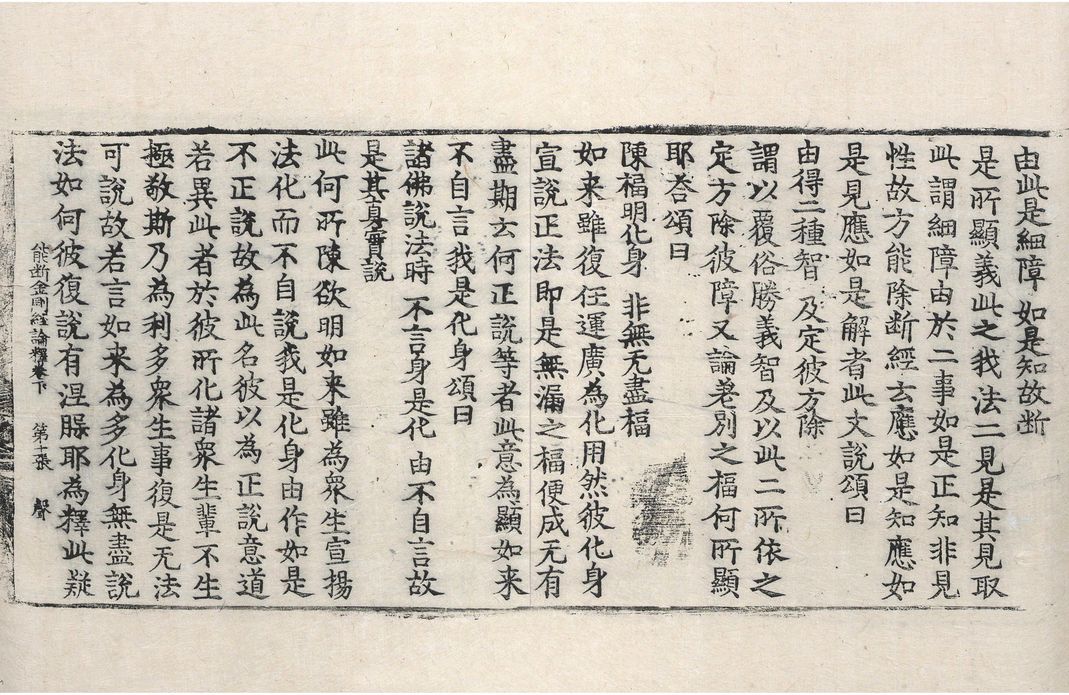 由此是細障 如是知故断
是所顯義此之我法二見是其見取
此謂細障由於二事如是正知非見
性故方能除断經云應如是知應如
是見應如是解者此文說頌曰
由得二種智 及定彼方除
謂以覆俗勝義智及以此二所依之
定方除彼障又論差別之福何所顯
耶荅頌曰
陳福明化身 非無无盡福
如来雖復任運廣為化用然彼化身
宣說正法即是無漏之福便成无有
盡期云何正說等者此意為顯如来
不自言我是化身頌曰
諸佛說法時 不言身是化 由不自言故
是其真實說
此何所陳欲明如来雖為衆生宣揚
法化而不自說我是化身由作如是
不正說故為此名彼以為正說意道
若異此者於彼所化諸衆生輩不生
極敬斯乃為利多衆生事復是无法
可說故若言如来為多化身無盡說
法如何彼復說有涅槃耶為釋此疑
能断金剛經論釋卷下 第十張 聲